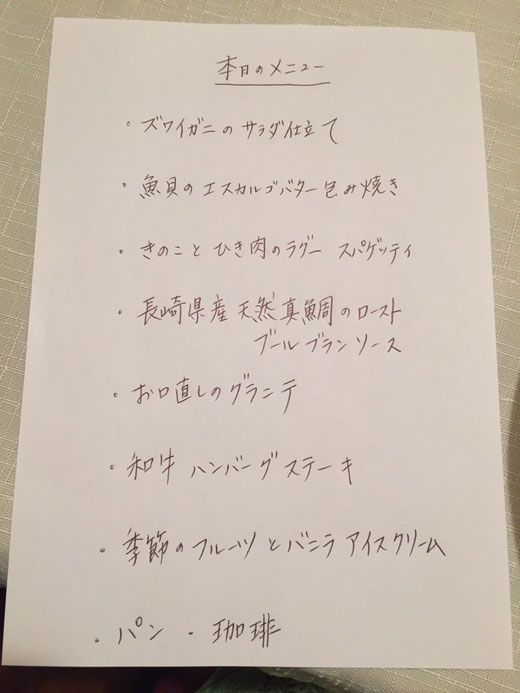 本日のメニュー
・ズワイガニのサラダ仕立て
・魚貝のエスカルゴバター包み焼き
・きのことひき肉のラグー スパゲッティ
・長崎県産天然真鯛のロースト
ブールブランソース
・お口直しのグラニテ
・和牛ハンバーグステーキ
・季節のフルーツとバニラアイスクリーム
・パン ・珈琲